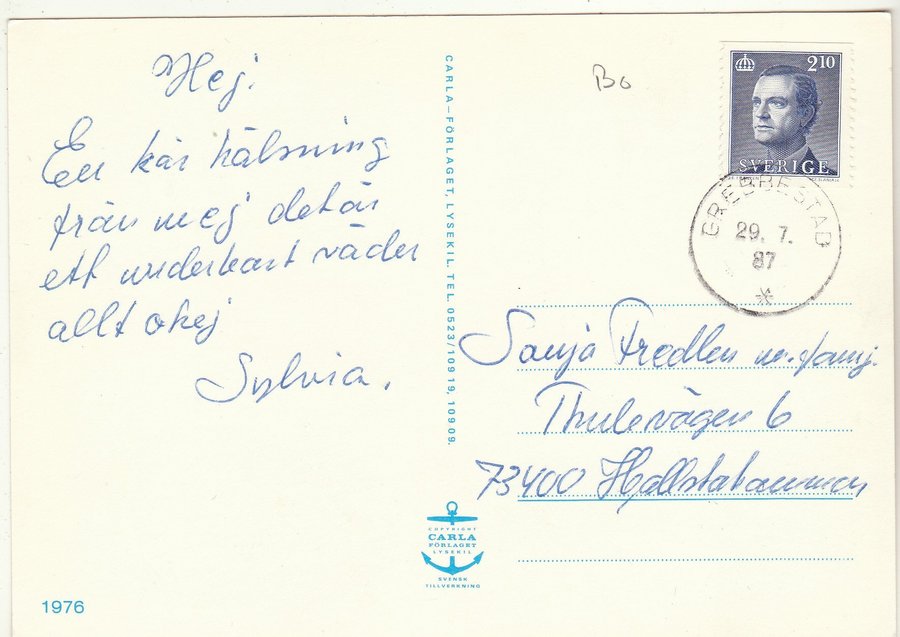 Hej.
En kär hälsning
från mej det är
ett underbart väder
allt okej
Sylvia.
CARLA-FÖRLAGET, LYSEKIL. TEL. 0523/109 19, 109 09.
Bo
2 10
SVERIGE
GREBBESTAD
29. 7.
87
Sonja Fredlen m. famj.
Thulevägen 6
73400 Hallstahammar
COPYRIGHT
CARLA
FÖRLAGET
LYSEKIL
SVENSK
TILLVERKNING
1976